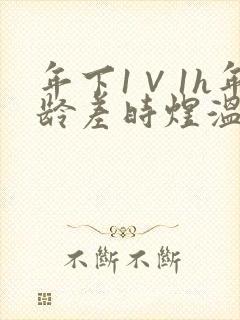 年下1V1h年
龄差时煌温
不斷不斷